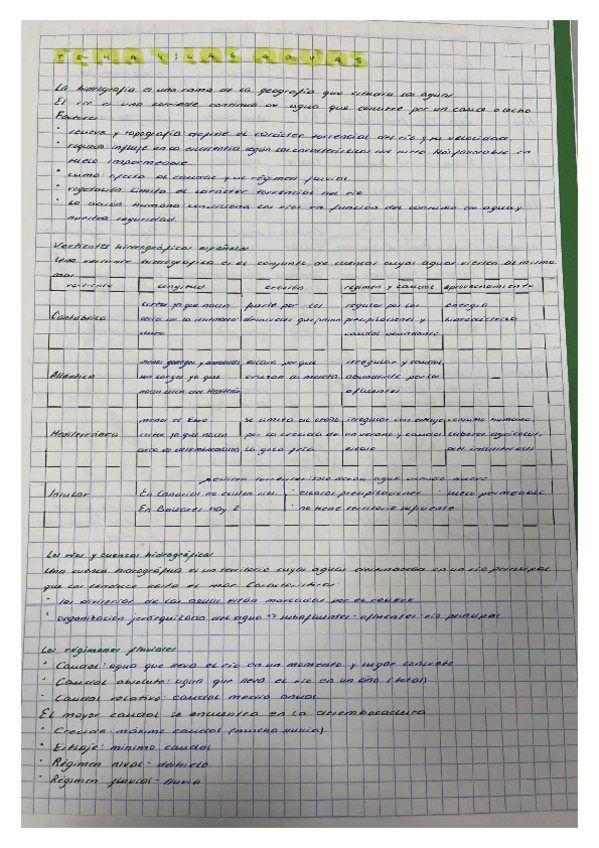 TEMA 4: LAS AGUAS
La hidrografía es una rama de la geografía que estudia las aguas.
El río es una corriente continua de agua que discurre por un cauce o lecho
Factores:
· relieve y topografía: define el carácter torrencial del río y su velocidad.
· influye en la escorrentía según las características del suelo. Más favorable en
suelo impermeable
· clima: afecta al caudal y al régimen fluvial.
· vegetación: limita el carácter torrencial del río
· la acción humana: condiciona los ríos en función del consumo de agua y
nuestra seguridad.
Vertientes hidrográficas españolas
Una vertiente hidrográfica es el conjunto de cuencas cuyas aguas vierten al mismo
mar
vertiente longitud erosión régimen y caudal aprovechamiento
Cantábrica cortos ya que nacen cerca de la fuerte por los desniveles que regular por las precipitaciones y caudal abundante energía hidroeléctrica
Atlántica menos gallegos y son largos ya que nacen cerca del escasa por que irregular y caudal abundante por los afluentes
Mediterránea menos el Ebro cortos ya que nacen cerca de desembocadura se limita al por la crecida de la gota fría irregular con estiaje en verano y caudal escaso consumo humano, labores agrícolas,
solo llevan agua cuando llueve
Insular En Canarias no existen ríos · escasas precipitaciones · suelo permeable
En Baleares hay 2 · no tiene territorio suficiente
Los ríos y cuencas hidrográficas
Una cuenca hidrográfica es un territorio cuyas aguas desembocan en un río principal
que las conduce hasta el mar. Características:
· las divisorias de las aguas están marcadas por el relieve
· organización jerarquizada del agua => subafluentes - afluentes - río principal
Los régimenes fluviales
· Caudal: agua que lleva el río en un momento y lugar concreto
· Caudal absoluto: agua que lleva el río en un año (total)
· Caudal relativo: caudal medio anual
El mayor caudal se encuentra en la desembocadura
· Crecida: máximo caudal (mucha lluvia)
· Estiaje: mínimo caudal
· Régimen nival: deshielo
· Régimen fluvial: lluvia